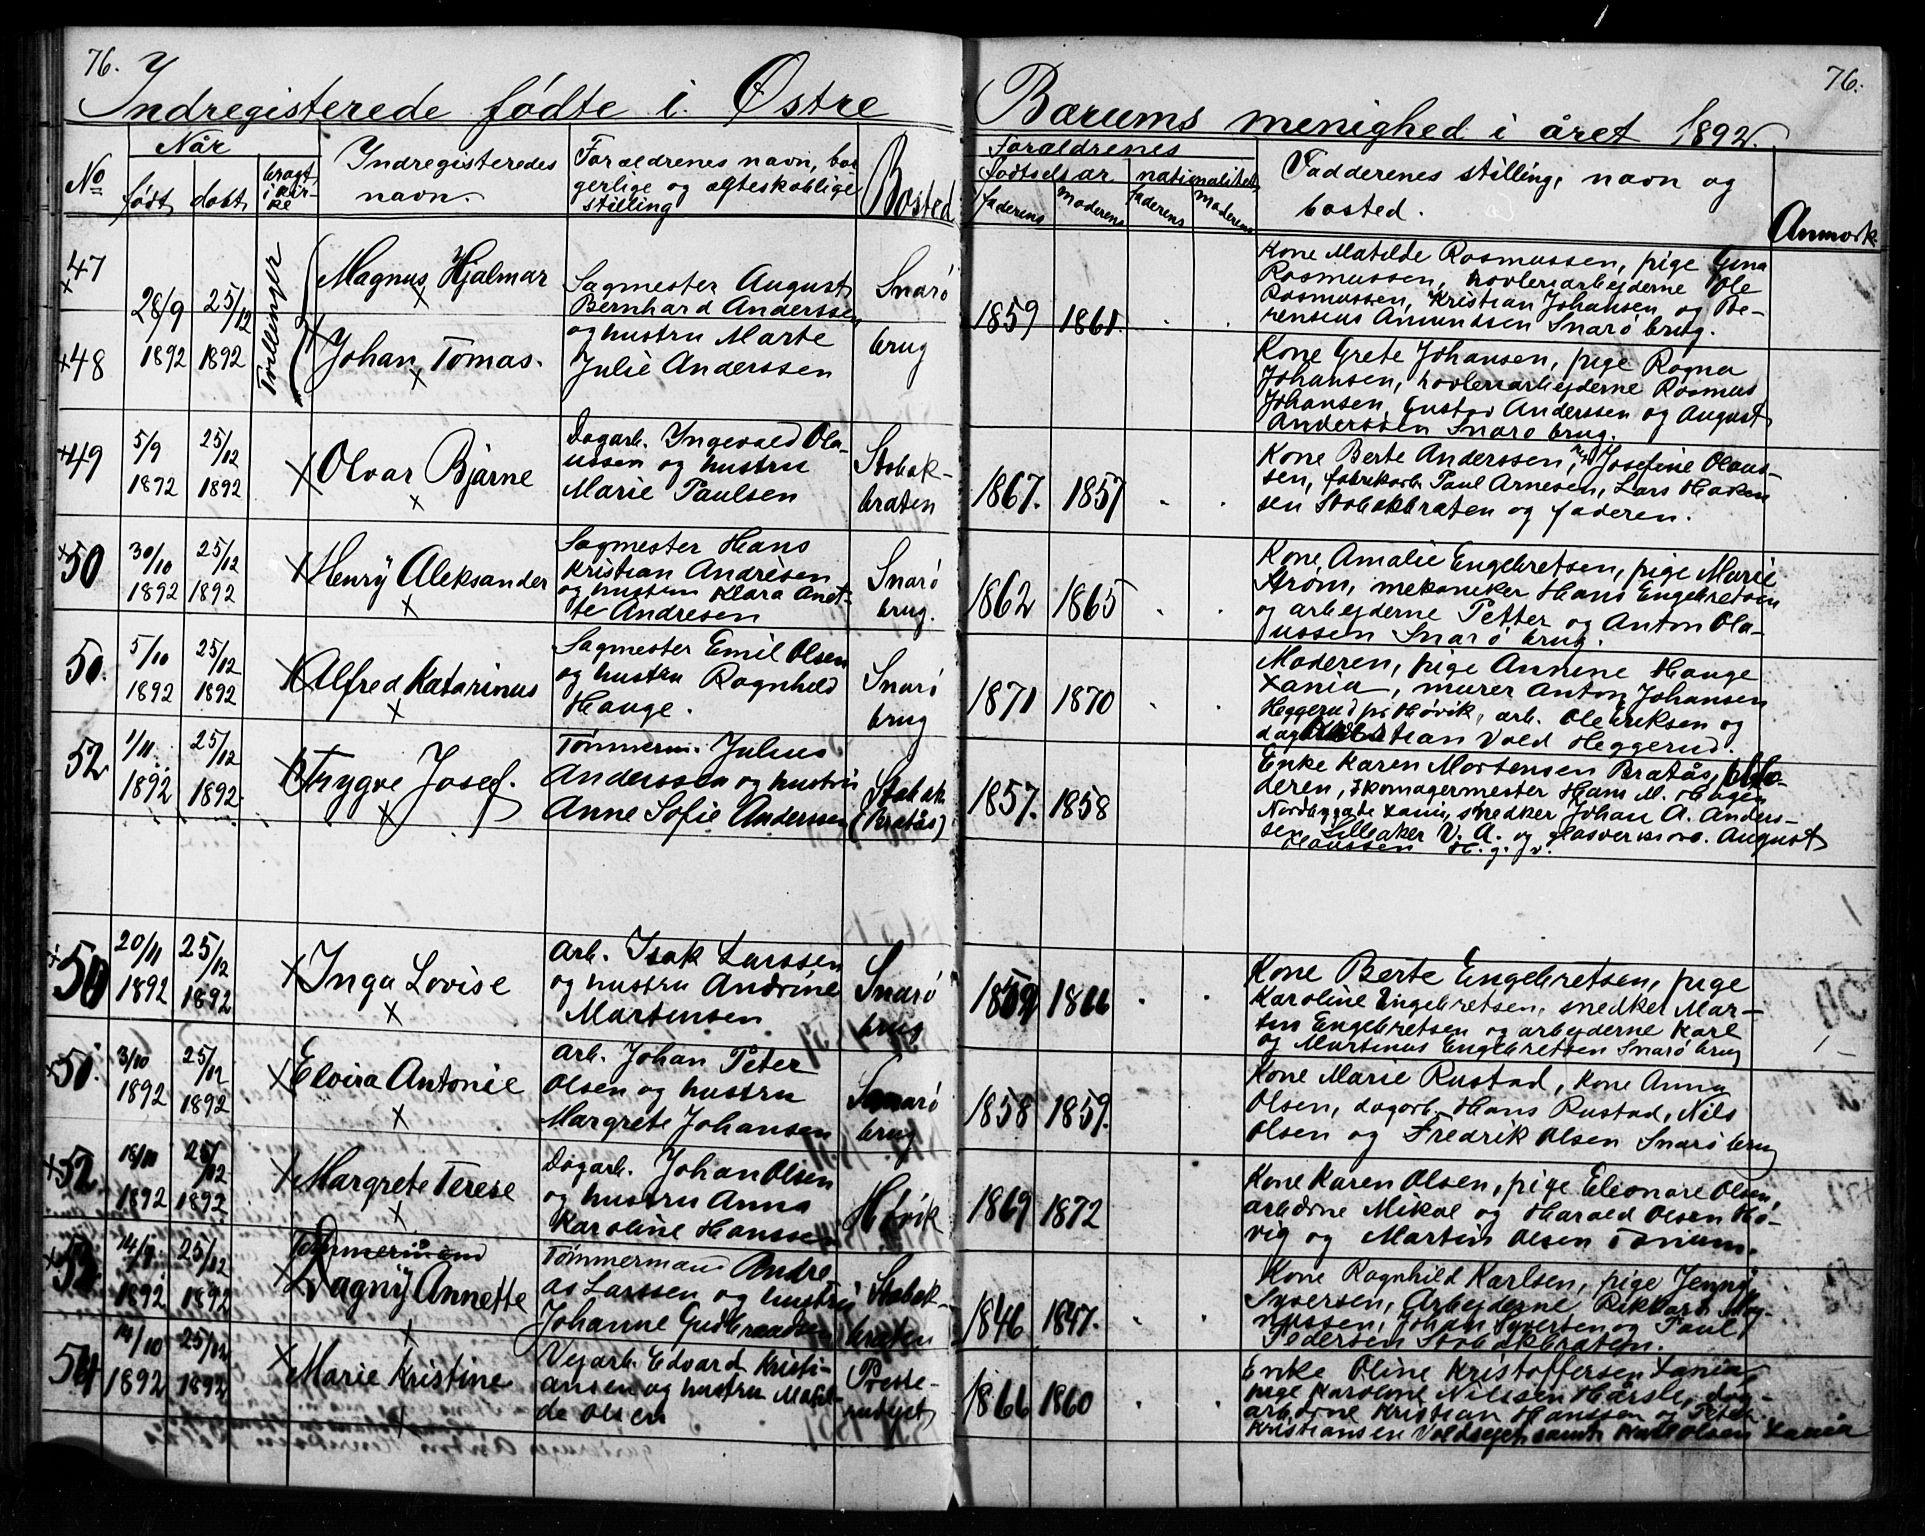 76.
Indregisterede fødte i. Østre
No
Når
født
døbt
bragt
i kir-
ke
Indregisteredes
navn.
Forældrenes navn, bor
gerlige og ægteskablige
stilling
Bosted
47
28/9
1892
25/12
1892
Tvillinger
Magnus Hjalmar
Sagmester August
Bernhard Anderssen
og hustru Marte
Julie Anderssen
Snarø
brug
48
Johan Tomas.
49
5/9
1892
25/12
1892
Olvar Bjarne
Dagarb. Ingevald Ola-
ussen og hustru
Marie Paulsen
Stabæk-
braten
50
30/10
1892
25/12
1892
Henry Aleksander
Sagmester Hans
Kristian Andresen
og hustru Klara Anet-
te Andresen
Snarø
brug.
50.
5/10
1892
25/12
1892
Alfred Katarinus
Sagmester Emil Olsen
og hustru Ragnhild
Hauge.
Snarø
brug
52
1/11
1892
25/12
1892
Trygve Josef.
Tømmerm. Julius
Anderssen og hustru
Anne Sofie Anderssen
Stabæk
(Bratås)
50
20/11
1892
25/12
1892
Inga Lovise
Arb. Isak Larssen
og hustru Andrine
Martinsen
Snarø
brug
51.
3/10
1892
25/12
1892
Elvira Antonie
Arb. Johan Peter
Olsen og hustru
Margrete Johansen
Snarø
brug
52
18/10
1892
25/12
1892
Margrete Terese
Dagarb. Johan Olsen
og hustru Anna
Karoline Hanssen
Høvik
53
14/9
1892
25/12
1892
Tømmermand
Dagny Annette
Tømmermand Andre
as Larssen og hustru
Johanne Gudbrandsen
Stabæk-
braten
54
14/10
1892
25/12
1892
Marie Kristine
Vejarb. Edvard Kristi-
ansen og hustru Matil-
de Olsen
76.
Bærums menighed i året 1892.
Forældrenes
fødselsår
nationalitet
faderens
moderens
faderens
moderens
Fadderenes stilling, navn og
bosted.
Anmærk
1859 1861.
Kone Matilde Rasmussen, pige Gina
Rasmussen, høvleriarbejderne Ole
Rasmussen, Kristian Johansen og Be-
rensius Amundsen Snarø brug.
Kone Grete Johansen, pige Ragna
Johansen, høvleriarbejderne Rasmus
Johansen, Gustav Anderssen og August
Anderssen Snarø brug.
1867. 1857
Kone Berte Anderssen, Josefine Olaus-
sen, fabrikarb. Paul Arnesen, Lars Haken
sen Stabækbraten og faderen.
1862 1865
Kone Amalie Engebretsen, pige Marie
Strøm, mekaniker Hans Engebretsen
og arbejderne Petter og Anton Ola-
jussen Snarø brug.
1871 1870
Moderen, pige Annine Hauge
Xania, murer Anton Johansen
Heggerud pr Høvik, arb. Ole Eriksen og
Kristian Vold Heggerud.
1857. 1858
Enke Karen Mortensen Bratås, Mo-
deren, skomagermester Hans M. Hagen
Nordbygade Xania, snedker Johan A. Anders-
sen Lilleaker V. A. og glasverksarb. August
Hanssen H. g. v.
1869 1866
Kone Berte Engebretsen, pige
Karoline Engebretsen, snedker Mar-
tin Engebretsen og arbejderne Karl
og Martinus Engebretsen Snarø brug
1858 1859.
Kone Marie Rustad, kone Anna
Olsen, dagarb. Hans Rustad, Nils
Olsen og Fredrik Olsen Snarø brug
1869 1872
Kone Karen Olsen, pige Eleonore Olsen,
arbderne Mikal og Harald Olsen Hø-
vig og Martin Olsen Tanum.
1846 1847.
Kone Ragnhild Karlsen, pige Jenny
Syversen, Arbejderne Rikkard Mag-
nussen, Johan Syversen og Paul
Pedersen Stabækbraten.
1866 1860
Enke Oline Kristoffersen Xania,
pige Karoline Nilssen Hårsle, dag-
arbderne Kristian Hanssen og Peter
Kristiansen Voldsejet samt Karl Olsen Xania